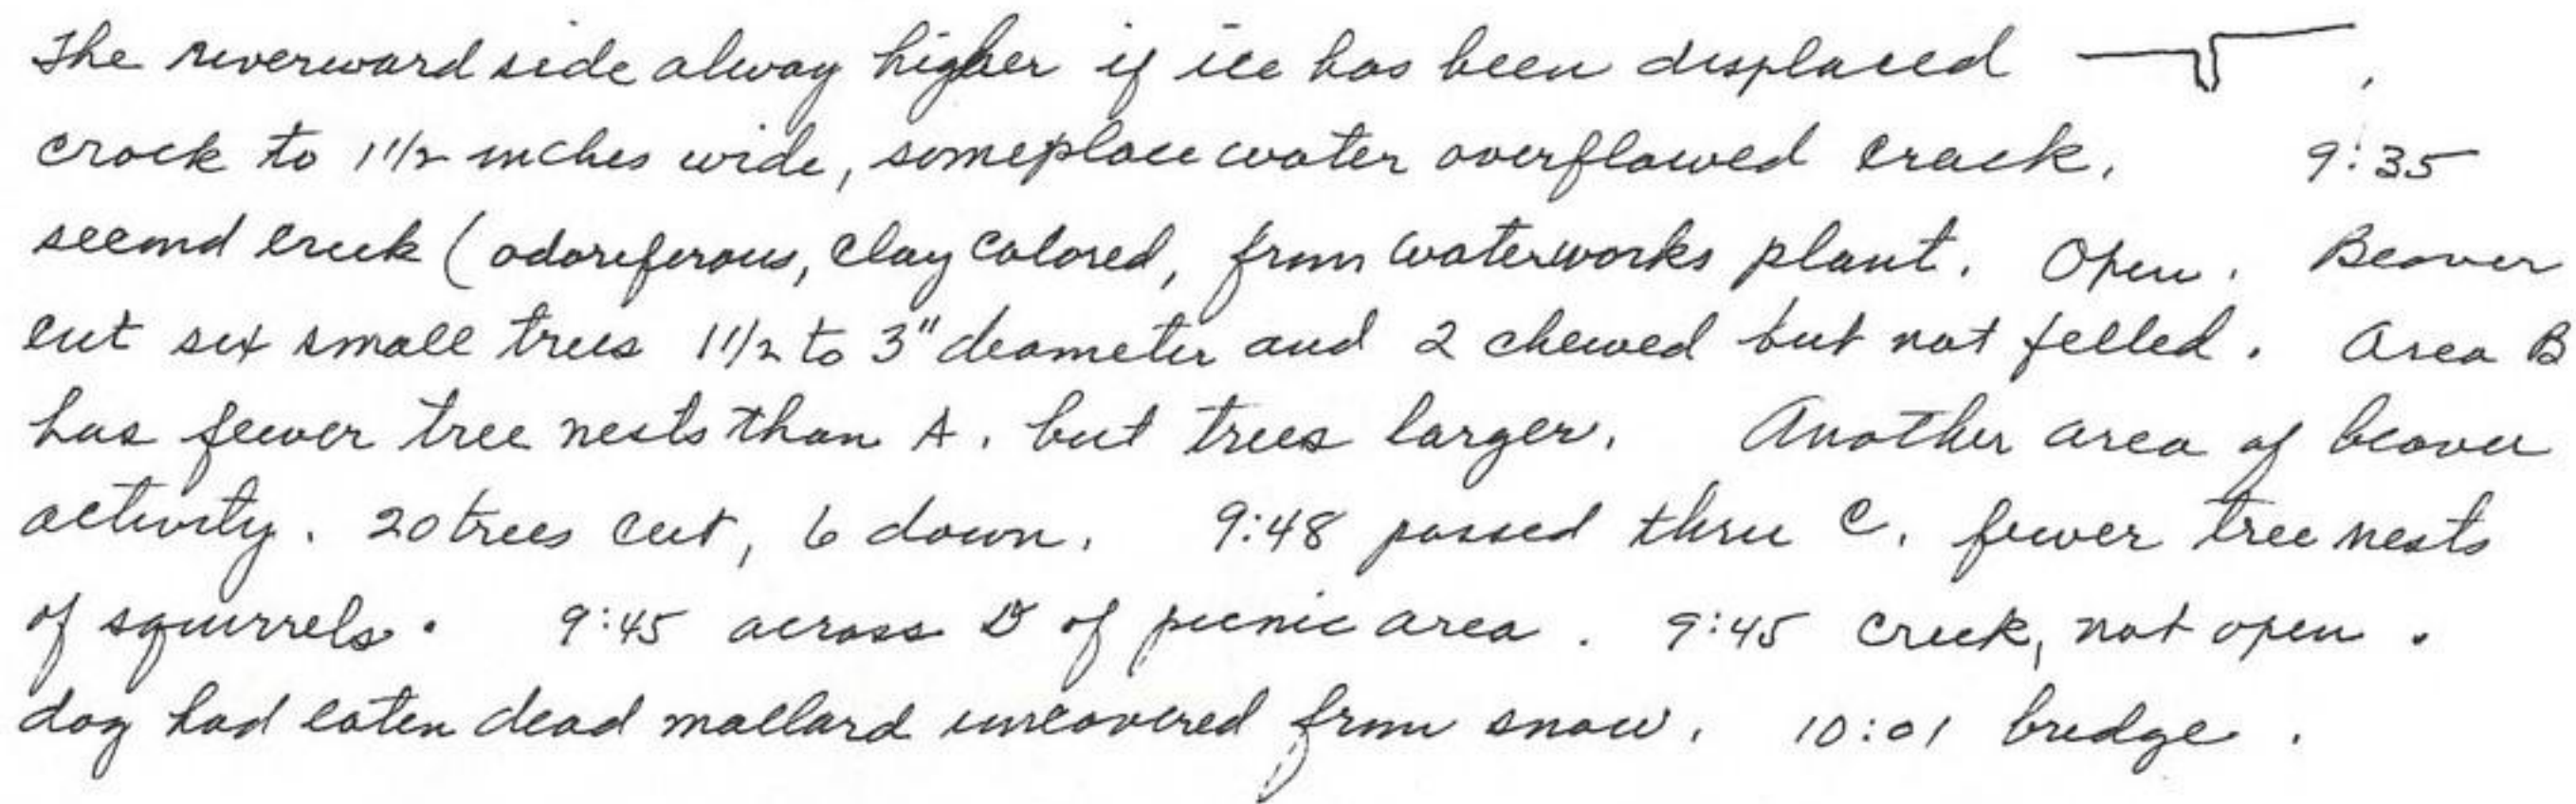 The riverward side alway higher if ice has been displaced ,
crack to 1 1/2 inches wide, someplace water overflowed crack. 9:35
second creek (odoriferous, clay colored, from waterworks plant. Open. Beaver
cut six small trees 1 1/2 to 3" diameter and 2 chewed but not felled. Area B
has fewer tree nests than A. but trees larger. Another area of beaver
activity. 20 trees cut, 6 down. 9:48 passed thru C. fewer tree nests
of squirrels. 9:45 across D of picnic area. 9:45 creek, not open.
dog had eaten dead mallard uncovered from snow. 10:01 bridge.